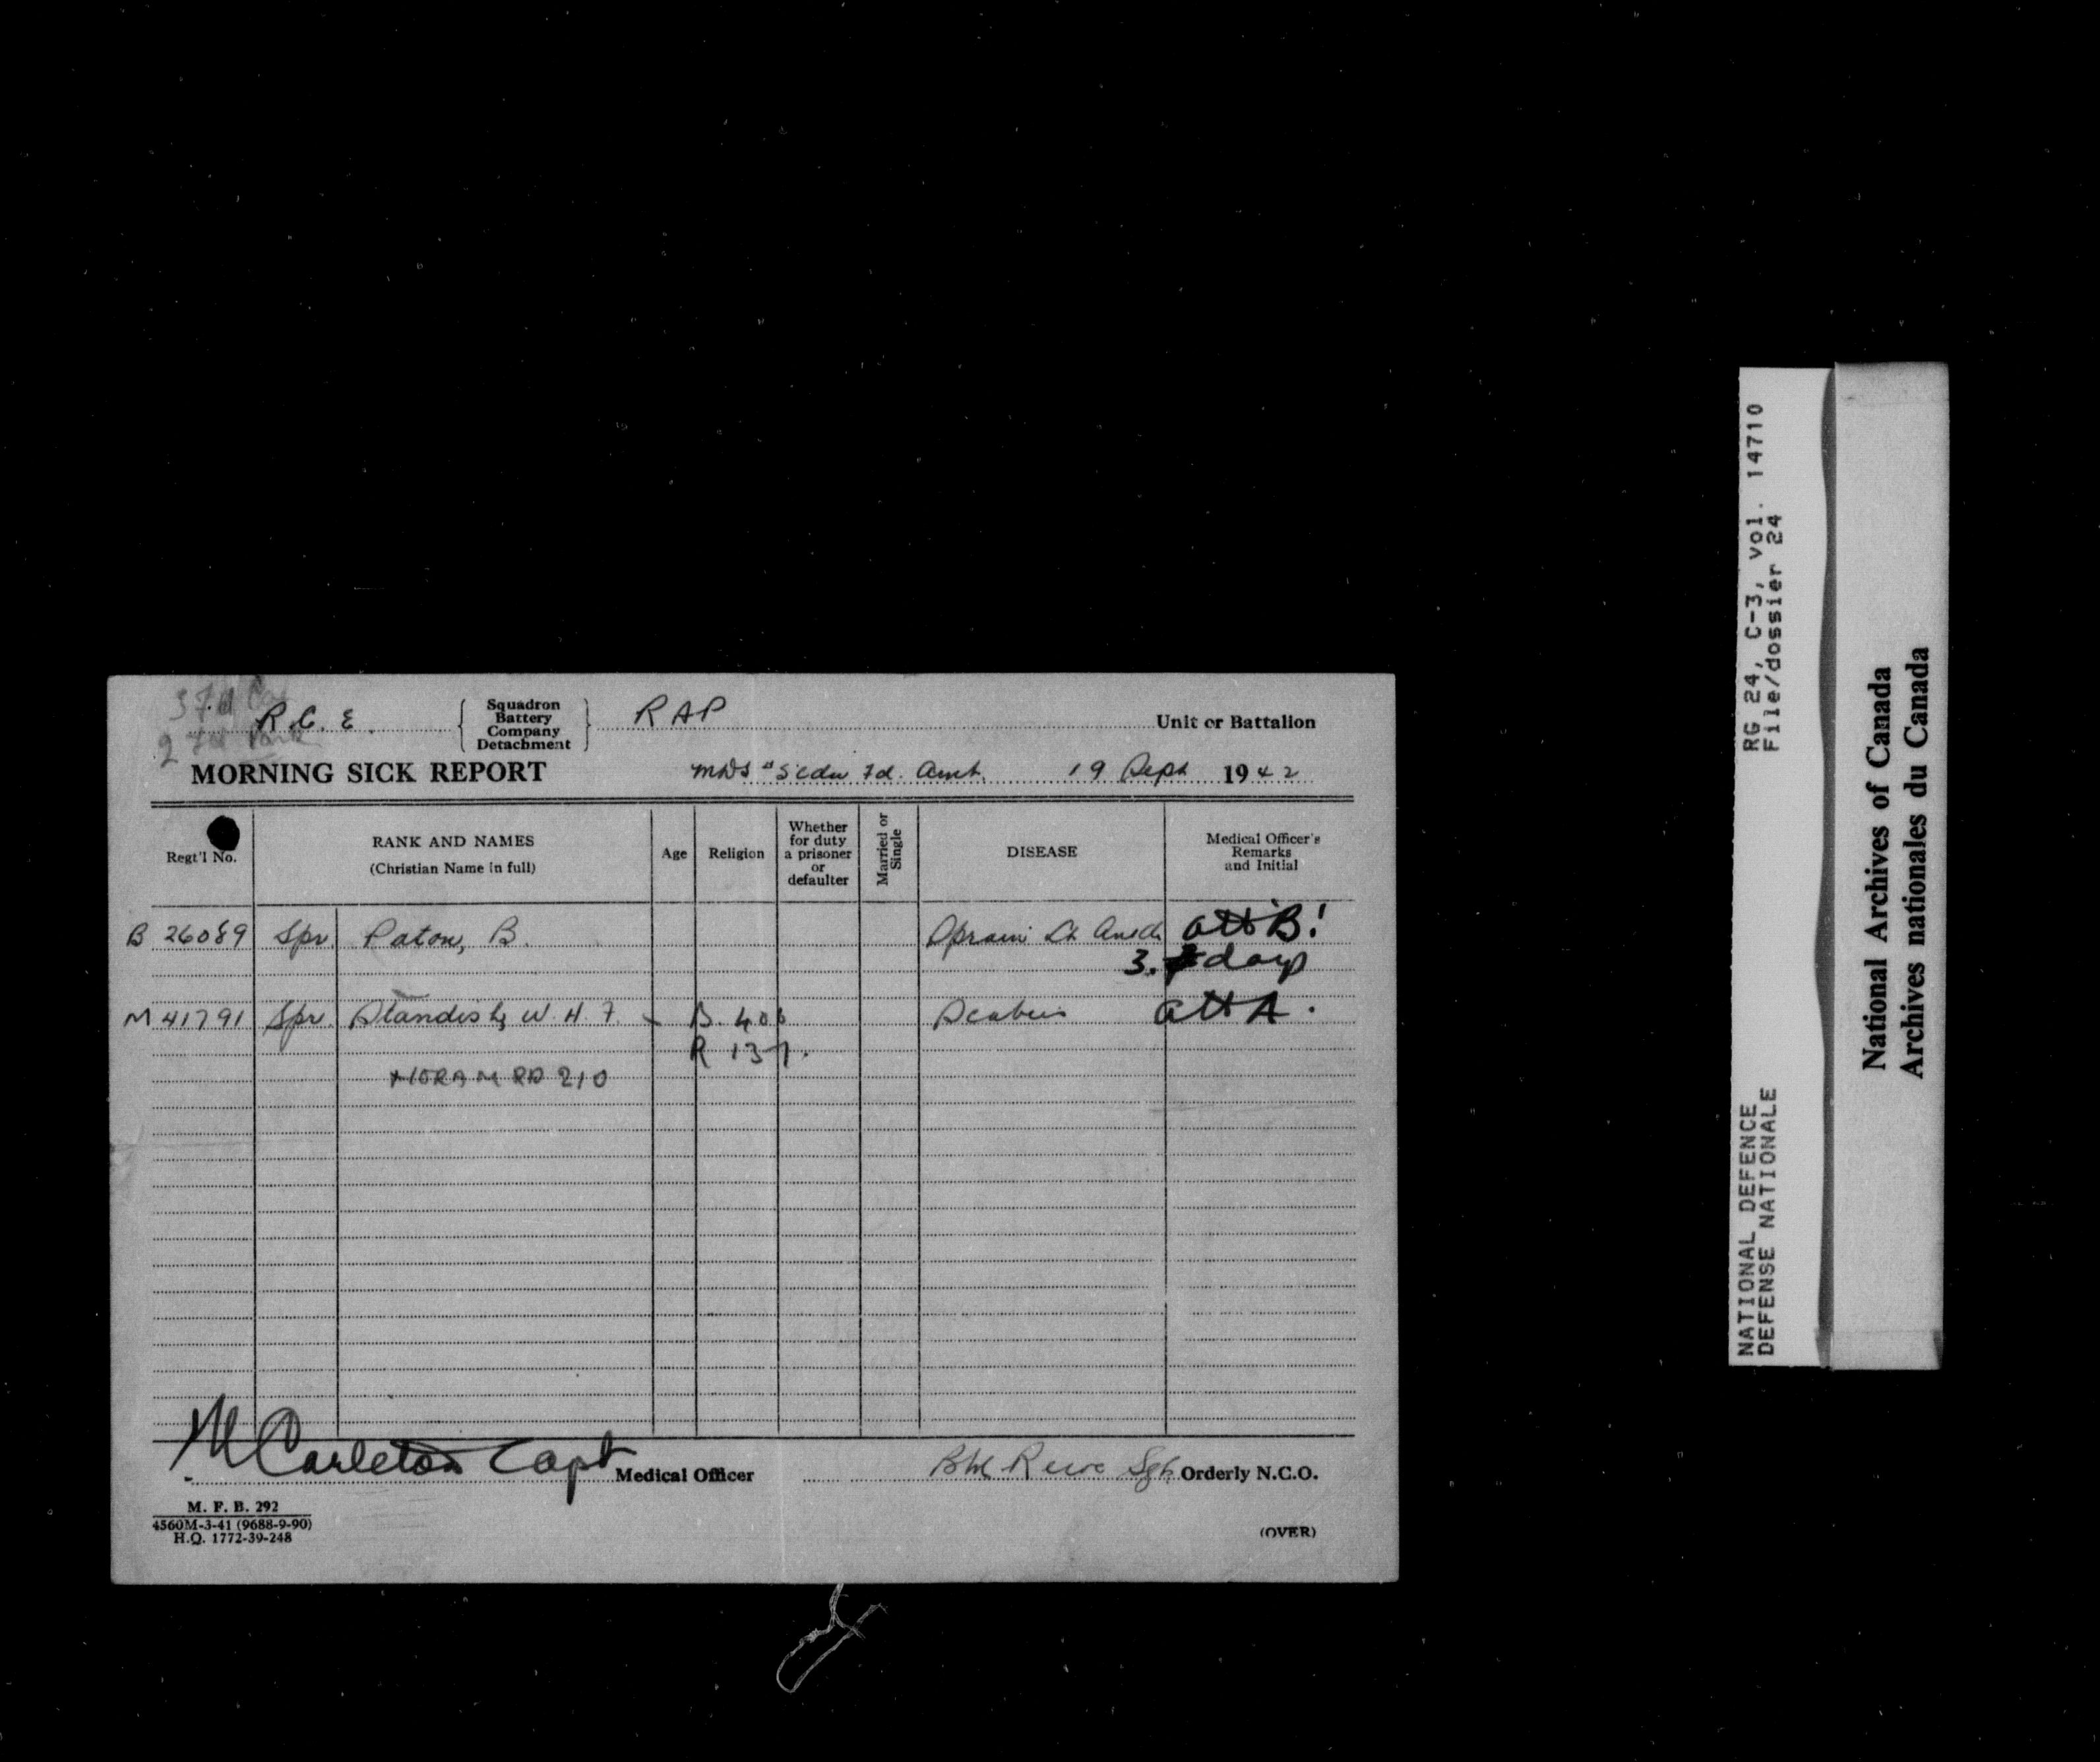 R.C.E. { Squadron Battery Company Detachment } RAP Unit or Battalion
MORNING SICK REPORT MDS "5 Cdn Fd. Amb. 19 Sept 1942
Regt'l No. RANK AND NAMES (Christian Name in full) Age Religion Whether for duty a prisoner or defaulter Married or Single DISEASE Medical Officer's Remarks and Initial
B 26089 Spr. Paton, B. Sprain Lt att B!
3. days
M 41791 Spr. Standish, W. H. F. B. 406 Scabies att A.
R 137.
RD 210
M Carleton Capt Medical Officer Sgt. Orderly N.C.O.
M. F. B. 292
4560M-3-41 (9688-9-90)
H.Q. 1772-39-248
(OVER)
NATIONAL DEFENCE RG 24, C-3, vol. 14710
DEFENSE NATIONALE File/dossier 24
National Archives of Canada
Archives nationales du Canada